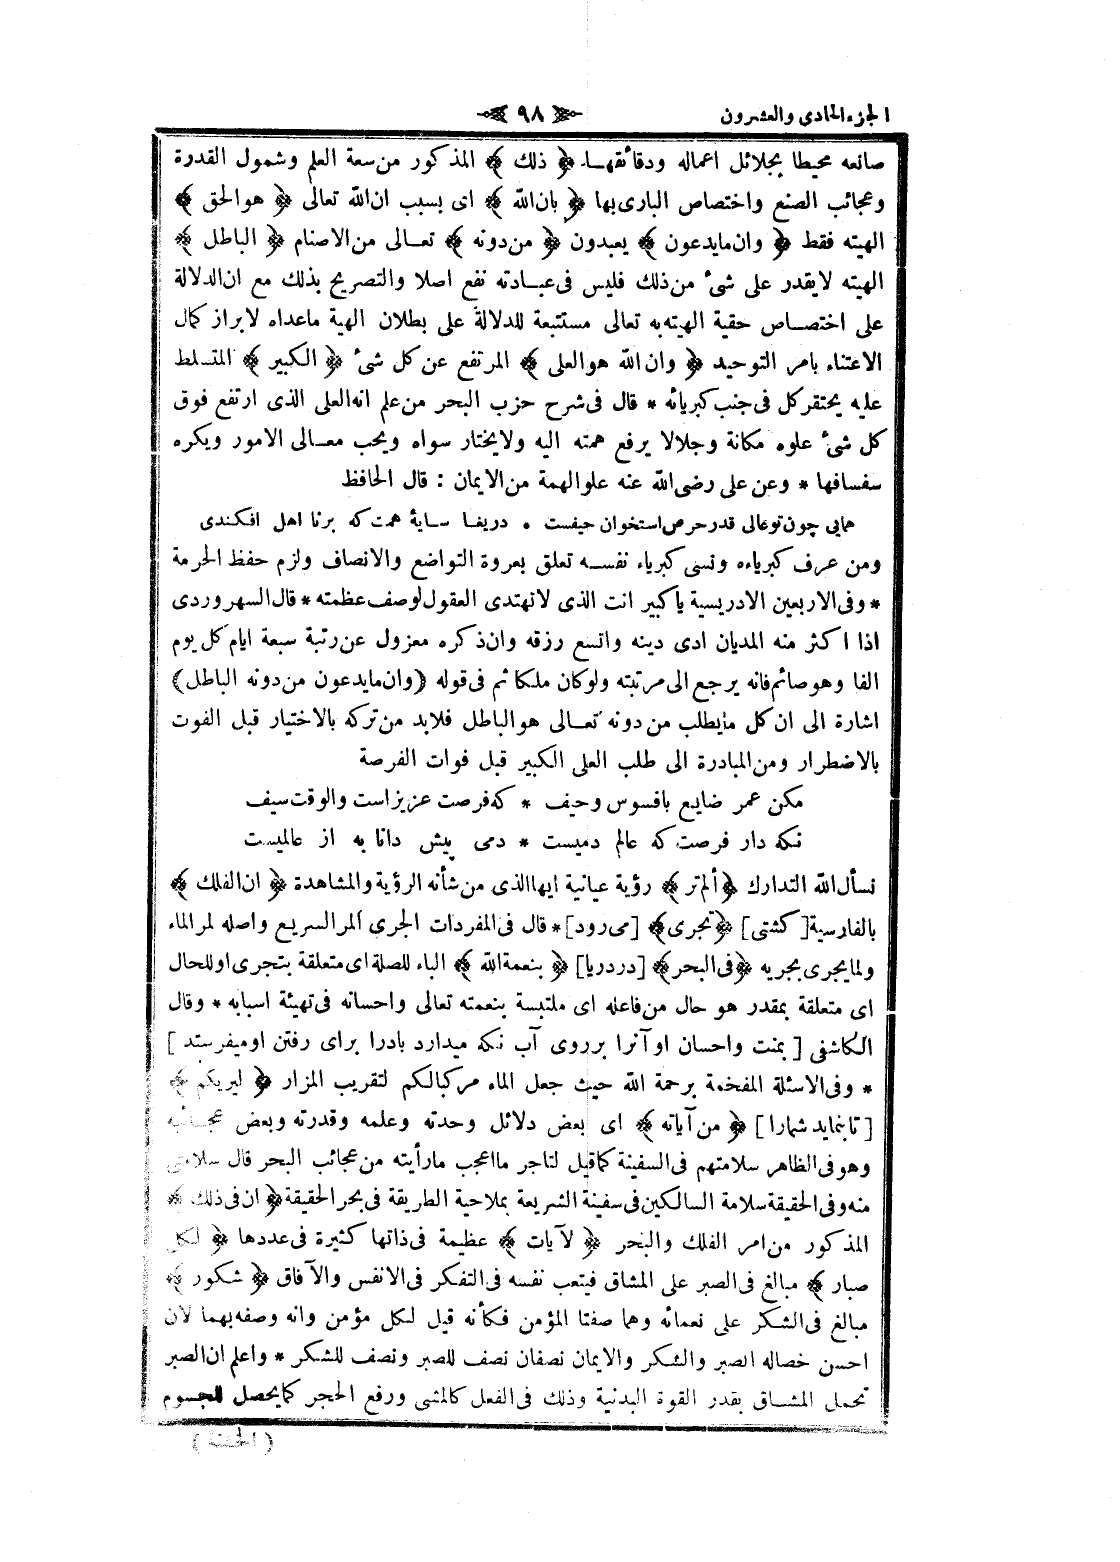 الجزء الحادى والعشرون ٩٨
صانعه محيطا بجلائل اعماله ودقائقهـا ﴿ ذلك ﴾ المذكور من سعة العلم وشمول القدرة
وعجائب الصنع واختصاص البارى بها ﴿ بان الله ﴾ اى بسبب ان الله تعالى ﴿ هو الحق ﴾
الهيته فقط ﴿ وان ما يدعون ﴾ يعبدون ﴿ من دونه ﴾ تعـالى من الاصنام ﴿ الباطل ﴾
الهيته لايقدر على شئ من ذلك فليس فى عبـادته نفع اصلا والتصريح بذلك مع ان الدلالة
على اختصـاص حقية الهيته به تعالى مستتبعة للدلالة على بطلان الهية ماعداه لابراز كمال
الاعتناء بامر التوحيد ﴿ وان الله هو العلى ﴾ المرتفع عن كل شئ ﴿ الكبير ﴾ المتسلط
عليه يحتقر كل فى جنب كبريائه * قال فى شرح حزب البحر من علم انه العلى الذى ارتفع فوق
كل شئ علوه مكانة وجلالا يرفع همته اليه ولايختار سواه ويحب معـالى الامور ويكره
سفسافها * وعن على رضى الله عنه علو الهمة من الايمان : قال الحافظ
همايى چون تو عالى قدر حرص استخوان حيفست * دريغـا سـاية همت كه بر نا اهل افكندى
ومن عرف كبرياءه ونسى كبرياء نفسـه تعلق بعروة التواضع والانصاف ولزم حفظ الحرمة
* وفى الاربعين الادريسية ياكبير انت الذى لاتهتدى العقول لوصف عظمته * قال السهروردى
اذا اكثر منه المديان ادى دينه واتسع رزقه وان ذكره معزول عن رتبة سبعة ايام كل يوم
الفا وهو صائم فانه يرجع الى مرتبته ولو كان ملكا ثم فى قوله (وان ما يدعون من دونه الباطل)
اشارة الى ان كل مايطلب من دونه تعـالى هو الباطل فلابد من تركه بالاختيار قبل الفوت
بالاضطرار ومن المبادرة الى طلب العلى الكبير قبل فوات الفرصة
مكن عمر ضايع بافسوس وحيف * كه فرصت عزيزاست والوقت سيف
نكه دار فرصت كه عالم دميست * دمى پيش دانا به از عالميست
نسأل الله التدارك ﴿ ألم تر ﴾ رؤية عيانية ايها الذى من شأنه الرؤية والمشاهدة ﴿ ان الفلك ﴾
بالفارسية [كشتى] ﴿ تجرى ﴾ [مى رود] * قال فى المفردات الجرى المر السريع واصله لمر الماء
ولما يجرى بجريه ﴿ فى البحر ﴾ [در دريا] ﴿ بنعمة الله ﴾ الباء للصلة اى متعلقة بتجرى او للحال
اى متعلقة بمقدر هو حال من فاعله اى ملتبسة بنعمته تعالى واحسانه فى تهيئة اسبابه * وقال
الكاشفى [ بمنت واحسان او آنرا بر روى آب نكه ميدارد بادرا براى رفتن او ميفرستد ]
* وفى الاسئلة المفخمة برحمة الله حيث جعل الماء مركبا لكم لتقريب المزار ﴿ ليريكم ﴾
[ تا بنمايد شمارا ] ﴿ من آياته ﴾ اى بعض دلائل وحدته وعلمه وقدرته وبعض عجـائبه
وهو فى الظاهر سلامتهم فى السفينة كما قيل لتاجر ما اعجب ما رأيته من عجائب البحر قال سلامتى
منه وفى الحقيقة سلامة السالكين فى سفينة الشريعة بملاحية الطريقة فى بحر الحقيقة ﴿ ان فى ذلك ﴾
المذكور من امر الفلك والبحر ﴿ لآيات ﴾ عظيمة فى ذاتها كثيرة فى عددها ﴿ لكل
صبار ﴾ مبالغ فى الصبر على المشاق فيتعب نفسه فى التفكر فى الانفس والآفاق ﴿ شكور ﴾
مبالغ فى الشكر على نعمائه وهما صفتا المؤمن فكأنه قيل لكل مؤمن وانه وصفه بهما لان
احسن خصاله الصبر والشكر والايمان نصفان نصف للصبر ونصف للشكر * واعلم ان الصبر
تحمل المشـاق بقدر القوة البدنية وذلك فى الفعل كالمشى ورفع الحجر كما يحصل للجسوم